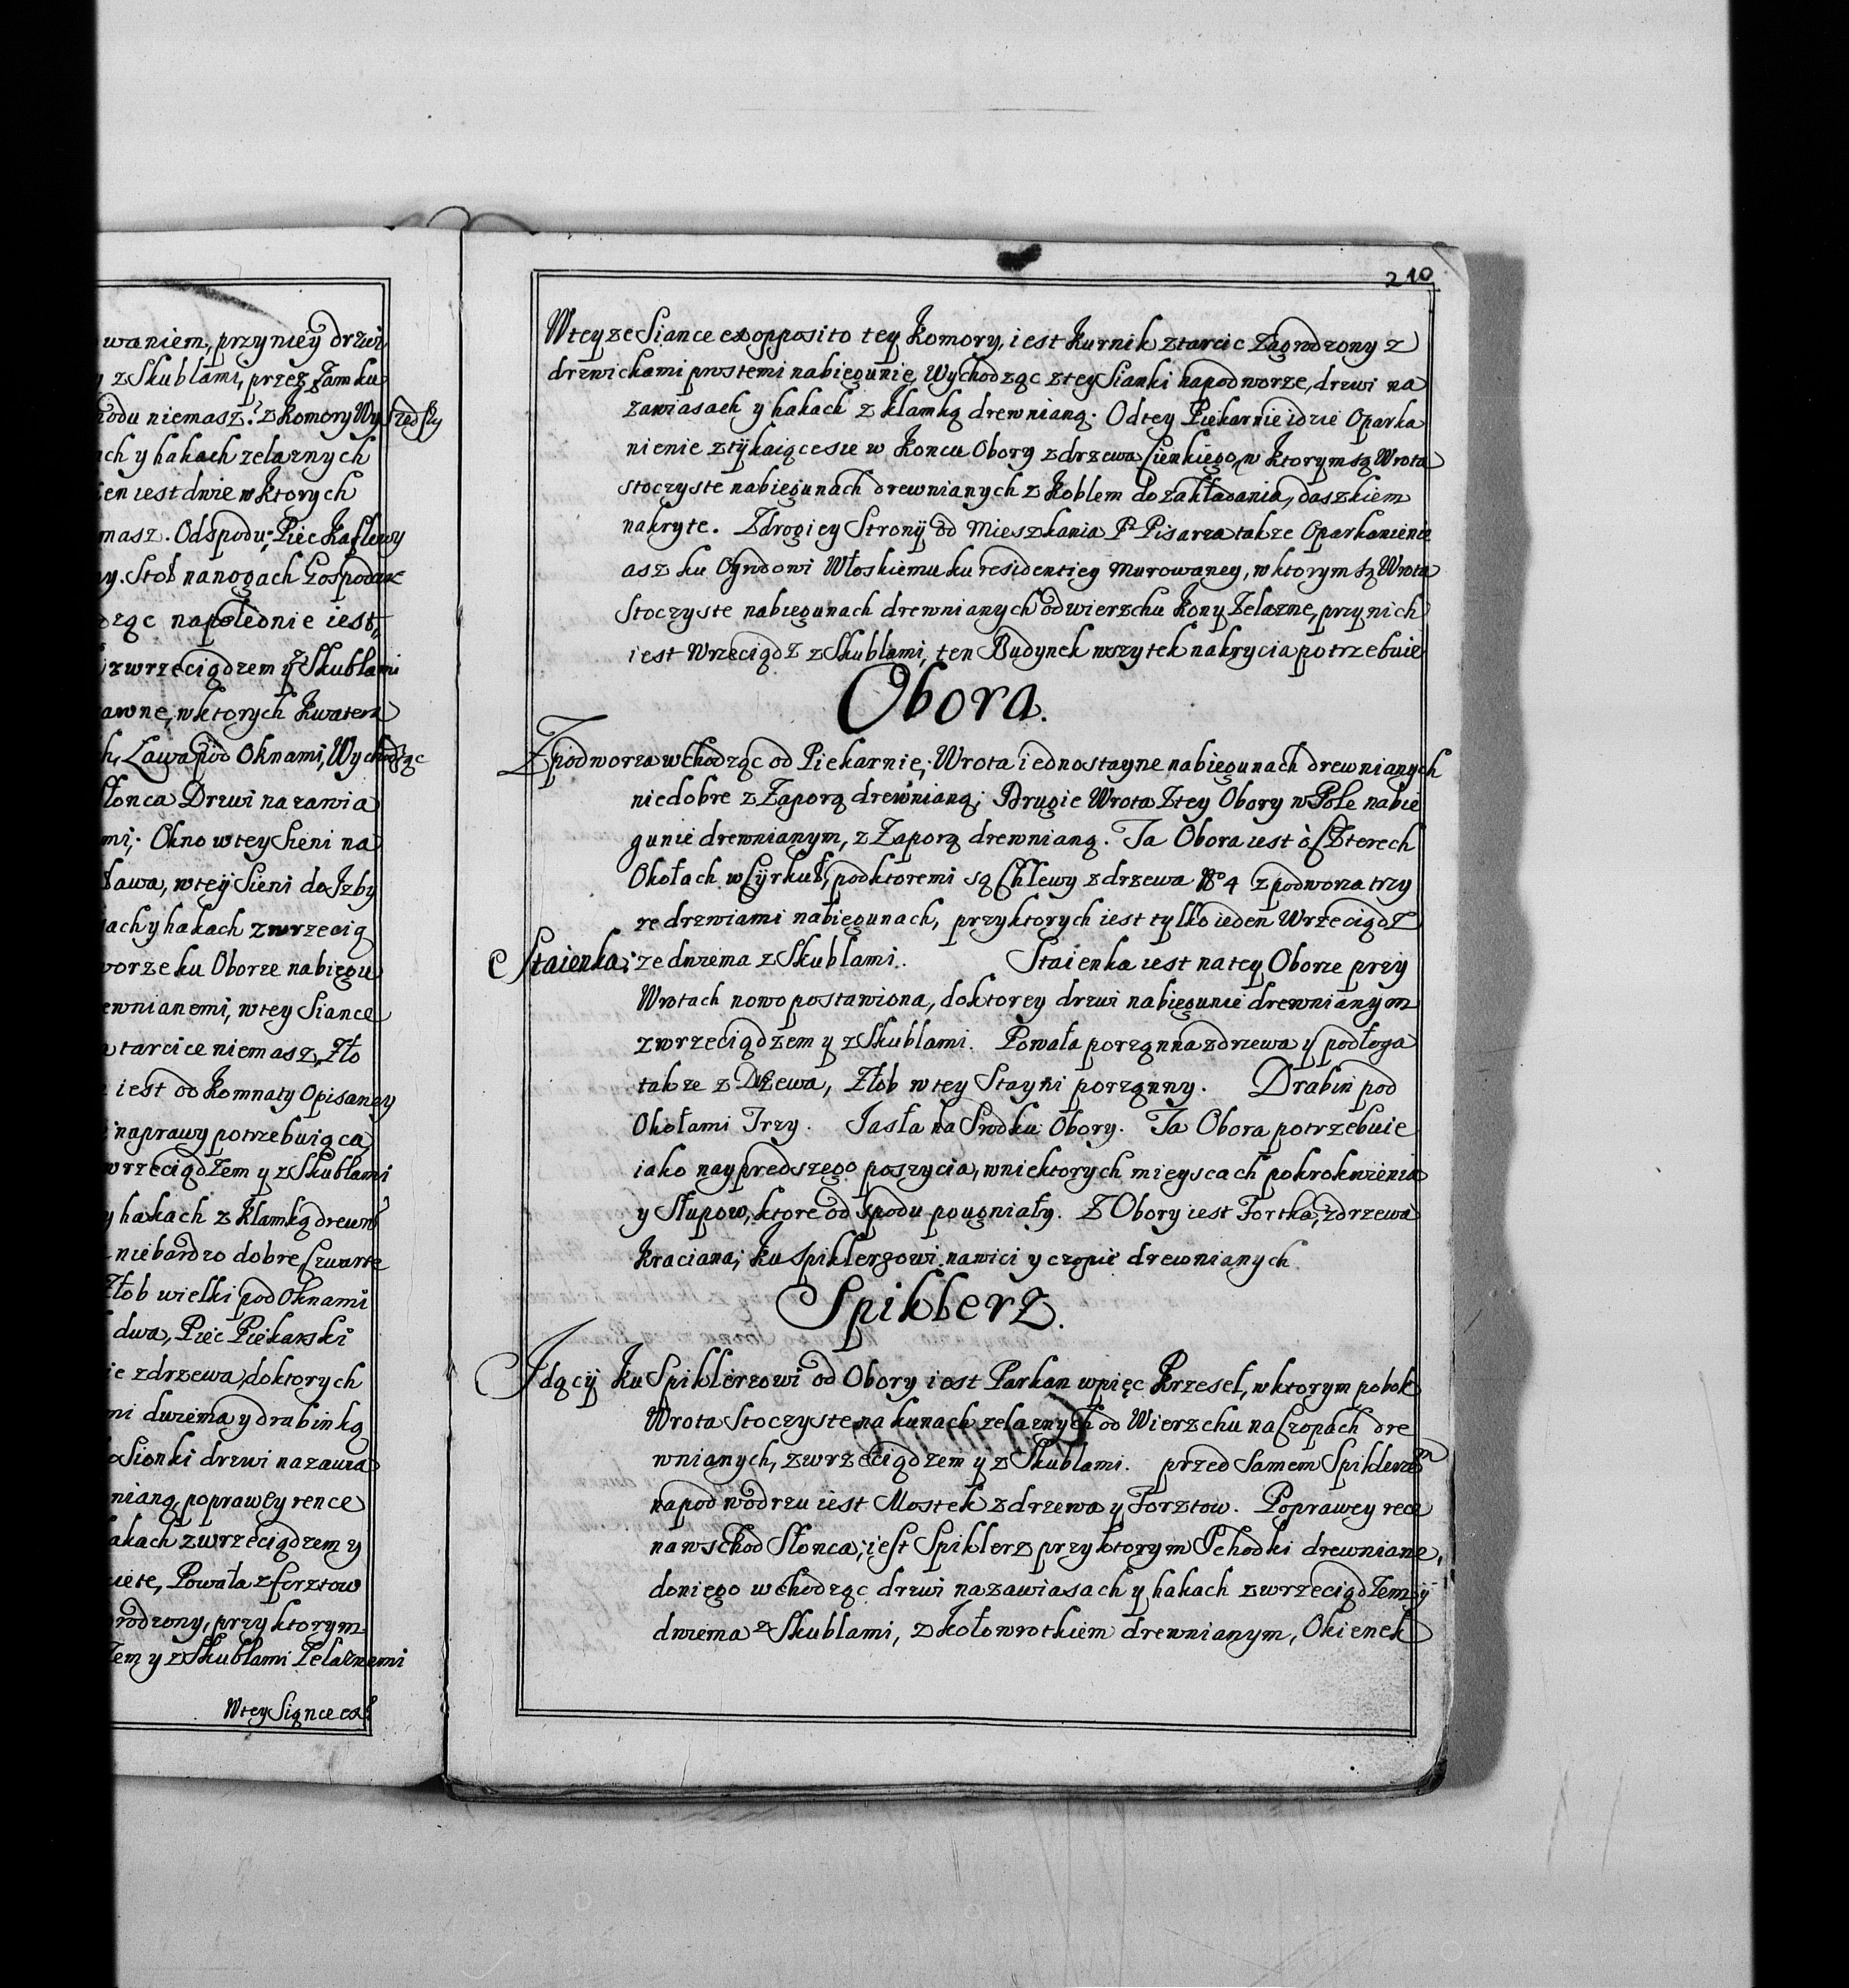 waniem, przy niey drzwi
z Skublami, przez Zamku
hodu niemasz. z Komory Wyszedszy
ach y hakach zelaznych
ien iest dwie w ktorych
masz. Od spodu, Piec Kaflewy
y. Stoł na nogach Gospodar
dząc naposlednie iest,
z wrzeciądzem y z Skublami
awne, w ktorych Kwatera
h, Ława pod Oknami, Wychodząc
słonca Drzwi na zawia
mi; Okno w tey Sieni na
Ława, w teÿ Sieni do Jzby
ach y hakach z wrzecią
worze ku Oborze na biegu
ewnianemi, w tey Siance
a tarcice niemasz, Zło
iest od Komnaty Opisaney
naprawy potrzebuiąca
wrzeciądzem y z Skublami
y hakach z Klamką drewn
niebardzo dobre, czwarte
Złob wielki pod Oknami
dwa, Piec Piekarski
ie z drzewa, do ktorych
mi dwiema y drabinką
o Sionki drzwi na zawia
nianą, po prawey rence
akach z wrzeciądzem y
iete, Powała z forsztow
rodzony, przy ktorym
Zem y z Skublami Zelaznemi
W tey Siance ex
210
W tey ze Siance ex opposito tey Komory, iest Kurnik z tarcic Zagrodzony z
drzwickami prostemi na biegunie, Wychodząc z tey Sianki na podworze, drzwi na
zawiasach y hakach z Klamką drewnianą. Od tey Piekarnie idzie Oparka
nienie ztÿkaiące sie w Koncu Obory z drzewa Cienkiego, w ktorym są Wrota
stoczyste na biegunach drewnianych z Koblem do zakładania, daszkiem
nakryte. Z drogiey Stronÿ od Mieszkania P. Pisarza takze Oparkanienie
asz ku Ogrodowi Włoskiemu ku residentiey Murowaney, w ktorym są Wrota
Stoczyste na biegunach drewnianych od wierzchu Kony Zelazne, przy nich
iest Wrzeciądz z Skublami, ten Budynek wszytek nakrycia potrzebuie
Obora.
Z podworza wchodząc od Piekarnie, Wrota iednostayne na biegunach drewnianych
niedobre z Zaporą drewnianą; Drugie Wrota Z tey Obory w Pole na bie
gunie drewnianym, z Zaporą drewnianą. Ta Obora iest o Czterech
Okołach w Cÿrkuł, pod ktoremi są Chlewy z drzewa No 4 z podworza trzy
ze drzwiami na biegunach, przy ktorych iest tylko ieden Wrzeciądz
Staienka; ze dwiema z Skublami. Staienka iest na tey Oborze przÿ
Wrotach nowo postawiona, do ktorey drzwi na biegunie drewnianym
z wrzeciądzem y z Skublami. Powała porządna z drzewa y podłoga
takze z Drzewa, Złob w tey Stayni porządny. Drabin pod
Okołami Trzy. Jasła na Srodku Obory. Ta Obora potrzebuie
iako nayprędszego poszycia, w niektorych mieyscach pokrokwienia
y Słupow, ktore od spodu pougniały. Z Obory iest Fortka, z drzewa
Kraciana; ku Spiklerzowi na wici y czopie drewnianych.
Spiklerz.
Jdącÿ ku Spiklerzowi od Obory iest Parkan w pięc Krzeseł, w ktorym pobok
Wrota Stoczyste na kunach zelaznych od Wierzchu na Czopach dre
wnianych, z wrzeciądzem y z Skublami. przed Samem Spiklerzem
na podwodrzu iest Mostek z drzewa y Forztow. Po prawey rece
na wschod Słonca; iest Spiklerz przy ktorym Schodki drewniane,
do niego wchodząc drzwi na zawiasach y hakach z wrzeciądzem y
dwiema z Skublami, z Kołowrotkiem drewnianym, Okienek